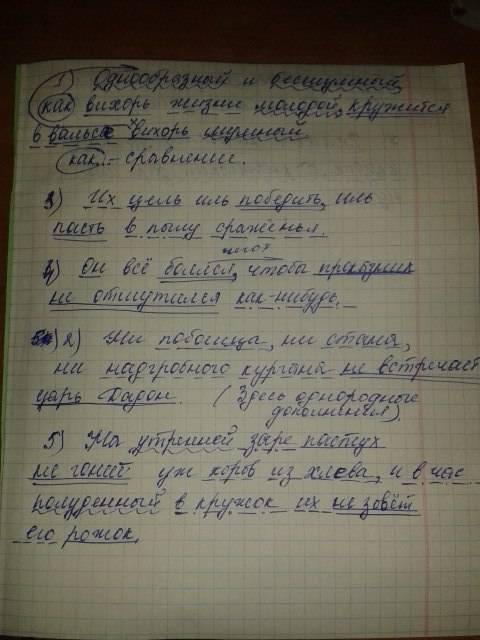 1) Однообразный и бесшумный,
как вихорь жизни молодой, кружится
в вальсе вихорь шумный.
как - сравнение.
3) Их цель иль победить, иль
пасть в пылу сраженья.
4) Он всё боялся, чтоба проказник
не отшутился как-нибудь.
2) Ни побоища, ни стана,
ни надгробного кургана не встречает
царь Дадон. (Здесь однородные
дополнения).
5) На утренней заре пастух
не гонит уж коров из хлева, и в час
полуденный в кружок их не зовёт
его рожок.